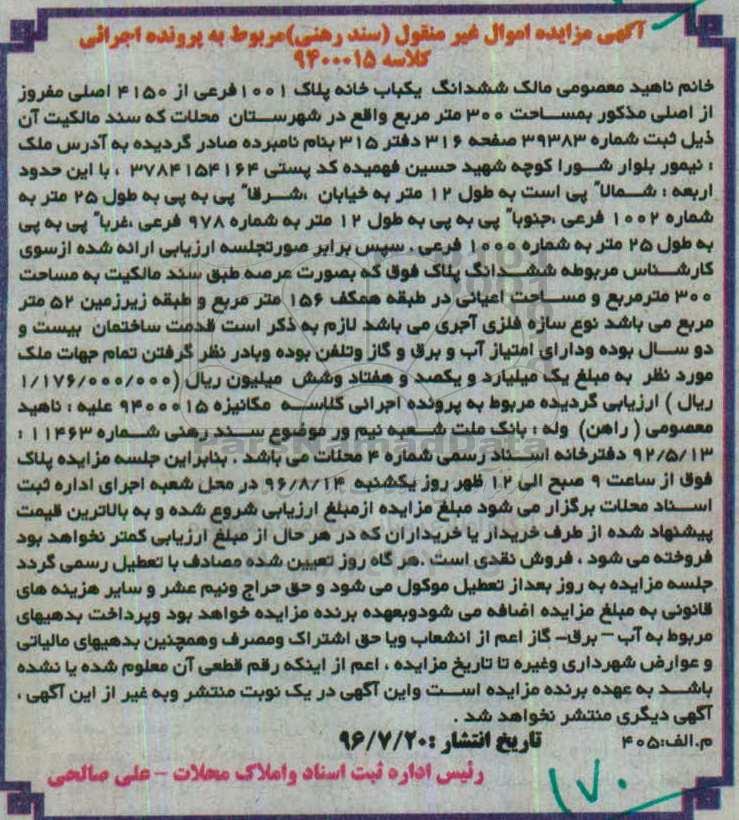 آگهی مزایده اموال غیر منقول (سند رهنی)مربوط به پرونده اجرائی
کلاسه ۹۴۰۰۰۱۵
خانم ناهید معصومی مالک ششدانگ یکباب خانه پلاک ۱۰۰۱فرعی از ۴۱۵۰ اصلی مفروز
از اصلی مذکور بمساحت ۳۰۰ متر مربع واقع در شهرستان محلات که سند مالکیت آن
ذیل ثبت شماره ۳۹۳۸۳ صفحه ۳۱۶ دفتر ۳۱۵ بنام نامبرده صادر گردیده به آدرس ملک
: نیمور بلوار شورا کوچه شهید حسین فهمیده کد پستی ۳۷۸۴۱۵۴۱۶۴ ، با این حدود
اربعه : شمالا" پی است به طول ۱۲ متر به خیابان ،شرقا" پی به پی به طول ۲۵ متر به
شماره ۱۰۰۲ فرعی ،جنوبا" پی به پی به طول ۱۲ متر به شماره ۹۷۸ فرعی ،غربا" پی به پی
به طول ۲۵ متر به شماره ۱۰۰۰ فرعی . سپس برابر صورتجلسه ارزیابی ارائه شده ازسوی
کارشناس مربوطه ششدانگ پلاک فوق که بصورت عرصه طبق سند مالکیت به مساحت
۳۰۰ مترمربع و مساحت اعیانی در طبقه همکف ۱۵۶ متر مربع و طبقه زیرزمین ۵۲ متر
مربع می باشد نوع سازه فلزی آجری می باشد لازم به ذکر است قدمت ساختمان بیست و
دو سال بوده ودارای امتیاز آب و برق و گاز وتلفن بوده وبادر نظر گرفتن تمام جهات ملک
مورد نظر به مبلغ یک میلیارد و یکصد و هفتاد وشش میلیون ریال (۱/۱۷۶/۰۰۰/۰۰۰
ریال ) ارزیابی گردیده مربوط به پرونده اجرائی کلاسه مکانیزه ۹۴۰۰۰۱۵ علیه : ناهید
معصومی ( راهن) وله : بانک ملت شعبه نیم ور موضوع سند رهنی شماره ۱۱۴۶۳ :
۹۲/۵/۱۳ دفترخانه اسناد رسمی شماره ۴ محلات می باشد . بنابراین جلسه مزایده پلاک
فوق از ساعت ۹ صبح الی ۱۲ ظهر روز یکشنبه ۹۶/۸/۱۴ در محل شعبه اجرای اداره ثبت
اسناد محلات برگزار می شود مبلغ مزایده ازمبلغ ارزیابی شروع شده و به بالاترین قیمت
پیشنهاد شده از طرف خریدار یا خریداران که در هر حال از مبلغ ارزیابی کمتر نخواهد بود
فروخته می شود ، فروش نقدی است .هر گاه روز تعیین شده مصادف با تعطیل رسمی گردد
جلسه مزایده به روز بعداز تعطیل موکول می شود و حق حراج ونیم عشر و سایر هزینه های
قانونی به مبلغ مزایده اضافه می شودوبعهده برنده مزایده خواهد بود وپرداخت بدهیهای
مربوط به آب – برق– گاز اعم از انشعاب ویا حق اشتراک ومصرف وهمچنین بدهیهای مالیاتی
و عوارض شهرداری وغیره تا تاریخ مزایده ، اعم از اینکه رقم قطعی آن معلوم شده یا نشده
باشد به عهده برنده مزایده است واین آگهی در یک نوبت منتشر وبه غیر از این آگهی ،
آگهی دیگری منتشر نخواهد شد .
م.الف:۴۰۵ تاریخ انتشار :۹۶/۷/۲۰
رئیس اداره ثبت اسناد واملاک محلات – علی صالحی
۱۷۰